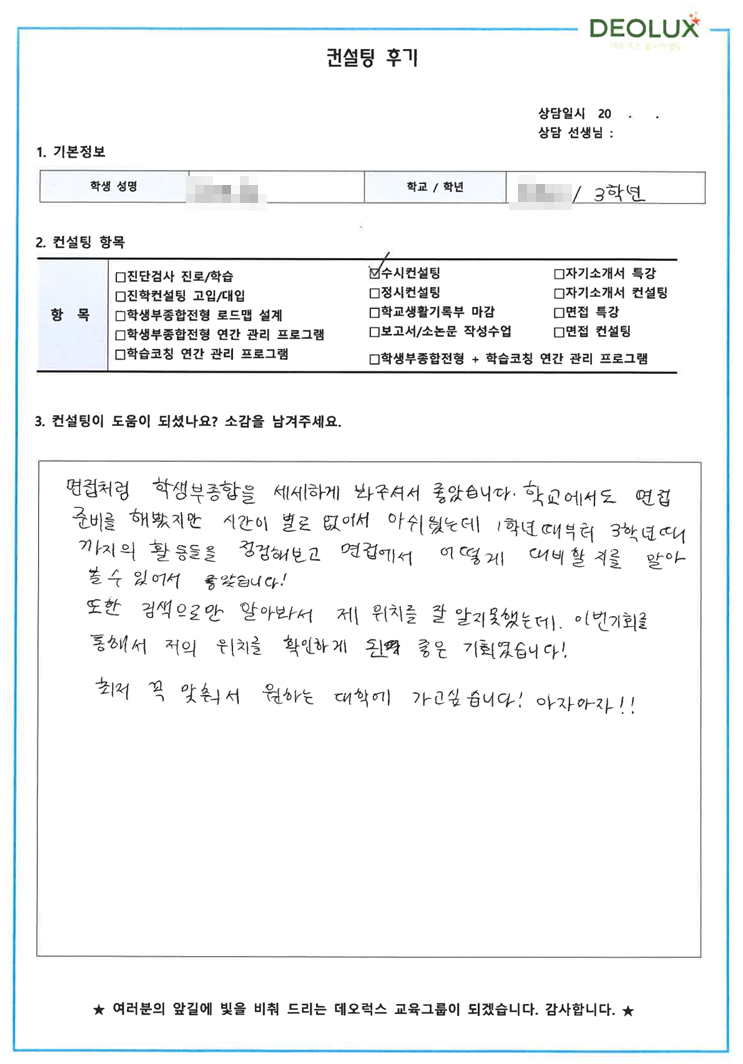 DEOLUX
컨설팅 후기
상담일시 20 . .
상담 선생님 :
1. 기본정보
학생 성명
학교 / 학년
/ 3학년
2. 컨설팅 항목
항 목
□진단검사 진로/학습
☑수시컨설팅
□자기소개서 특강
□진학컨설팅 고입/대입
□정시컨설팅
□자기소개서 컨설팅
□학생부종합전형 로드맵 설계
□학교생활기록부 마감
□면접 특강
□학생부종합전형 연간 관리 프로그램
□보고서/소논문 작성수업
□면접 컨설팅
□학습코칭 연간 관리 프로그램
□학생부종합전형 + 학습코칭 연간 관리 프로그램
3. 컨설팅이 도움이 되셨나요? 소감을 남겨주세요.
면접처럼 학생부종합을 세세하게 봐주셔서 좋았습니다. 학교에서도 면접
준비를 해봤지만 시간이 별로 없어서 아쉬웠는데 1학년때부터 3학년때
까지의 활동들을 점검해보고 면접에서 어떻게 대비할지를 알아
볼 수 있어서 좋았습니다!
또한 검색으로만 알아봐서 제 위치를 잘 알지못했는데. 이번기회를
통해서 저의 위치를 확인하게 된 좋은 기회였습니다!
최저 꼭 맞춰서 원하는 대학에 가고싶습니다! 아자아자!!
★ 여러분의 앞길에 빛을 비춰 드리는 데오럭스 교육그룹이 되겠습니다. 감사합니다. ★